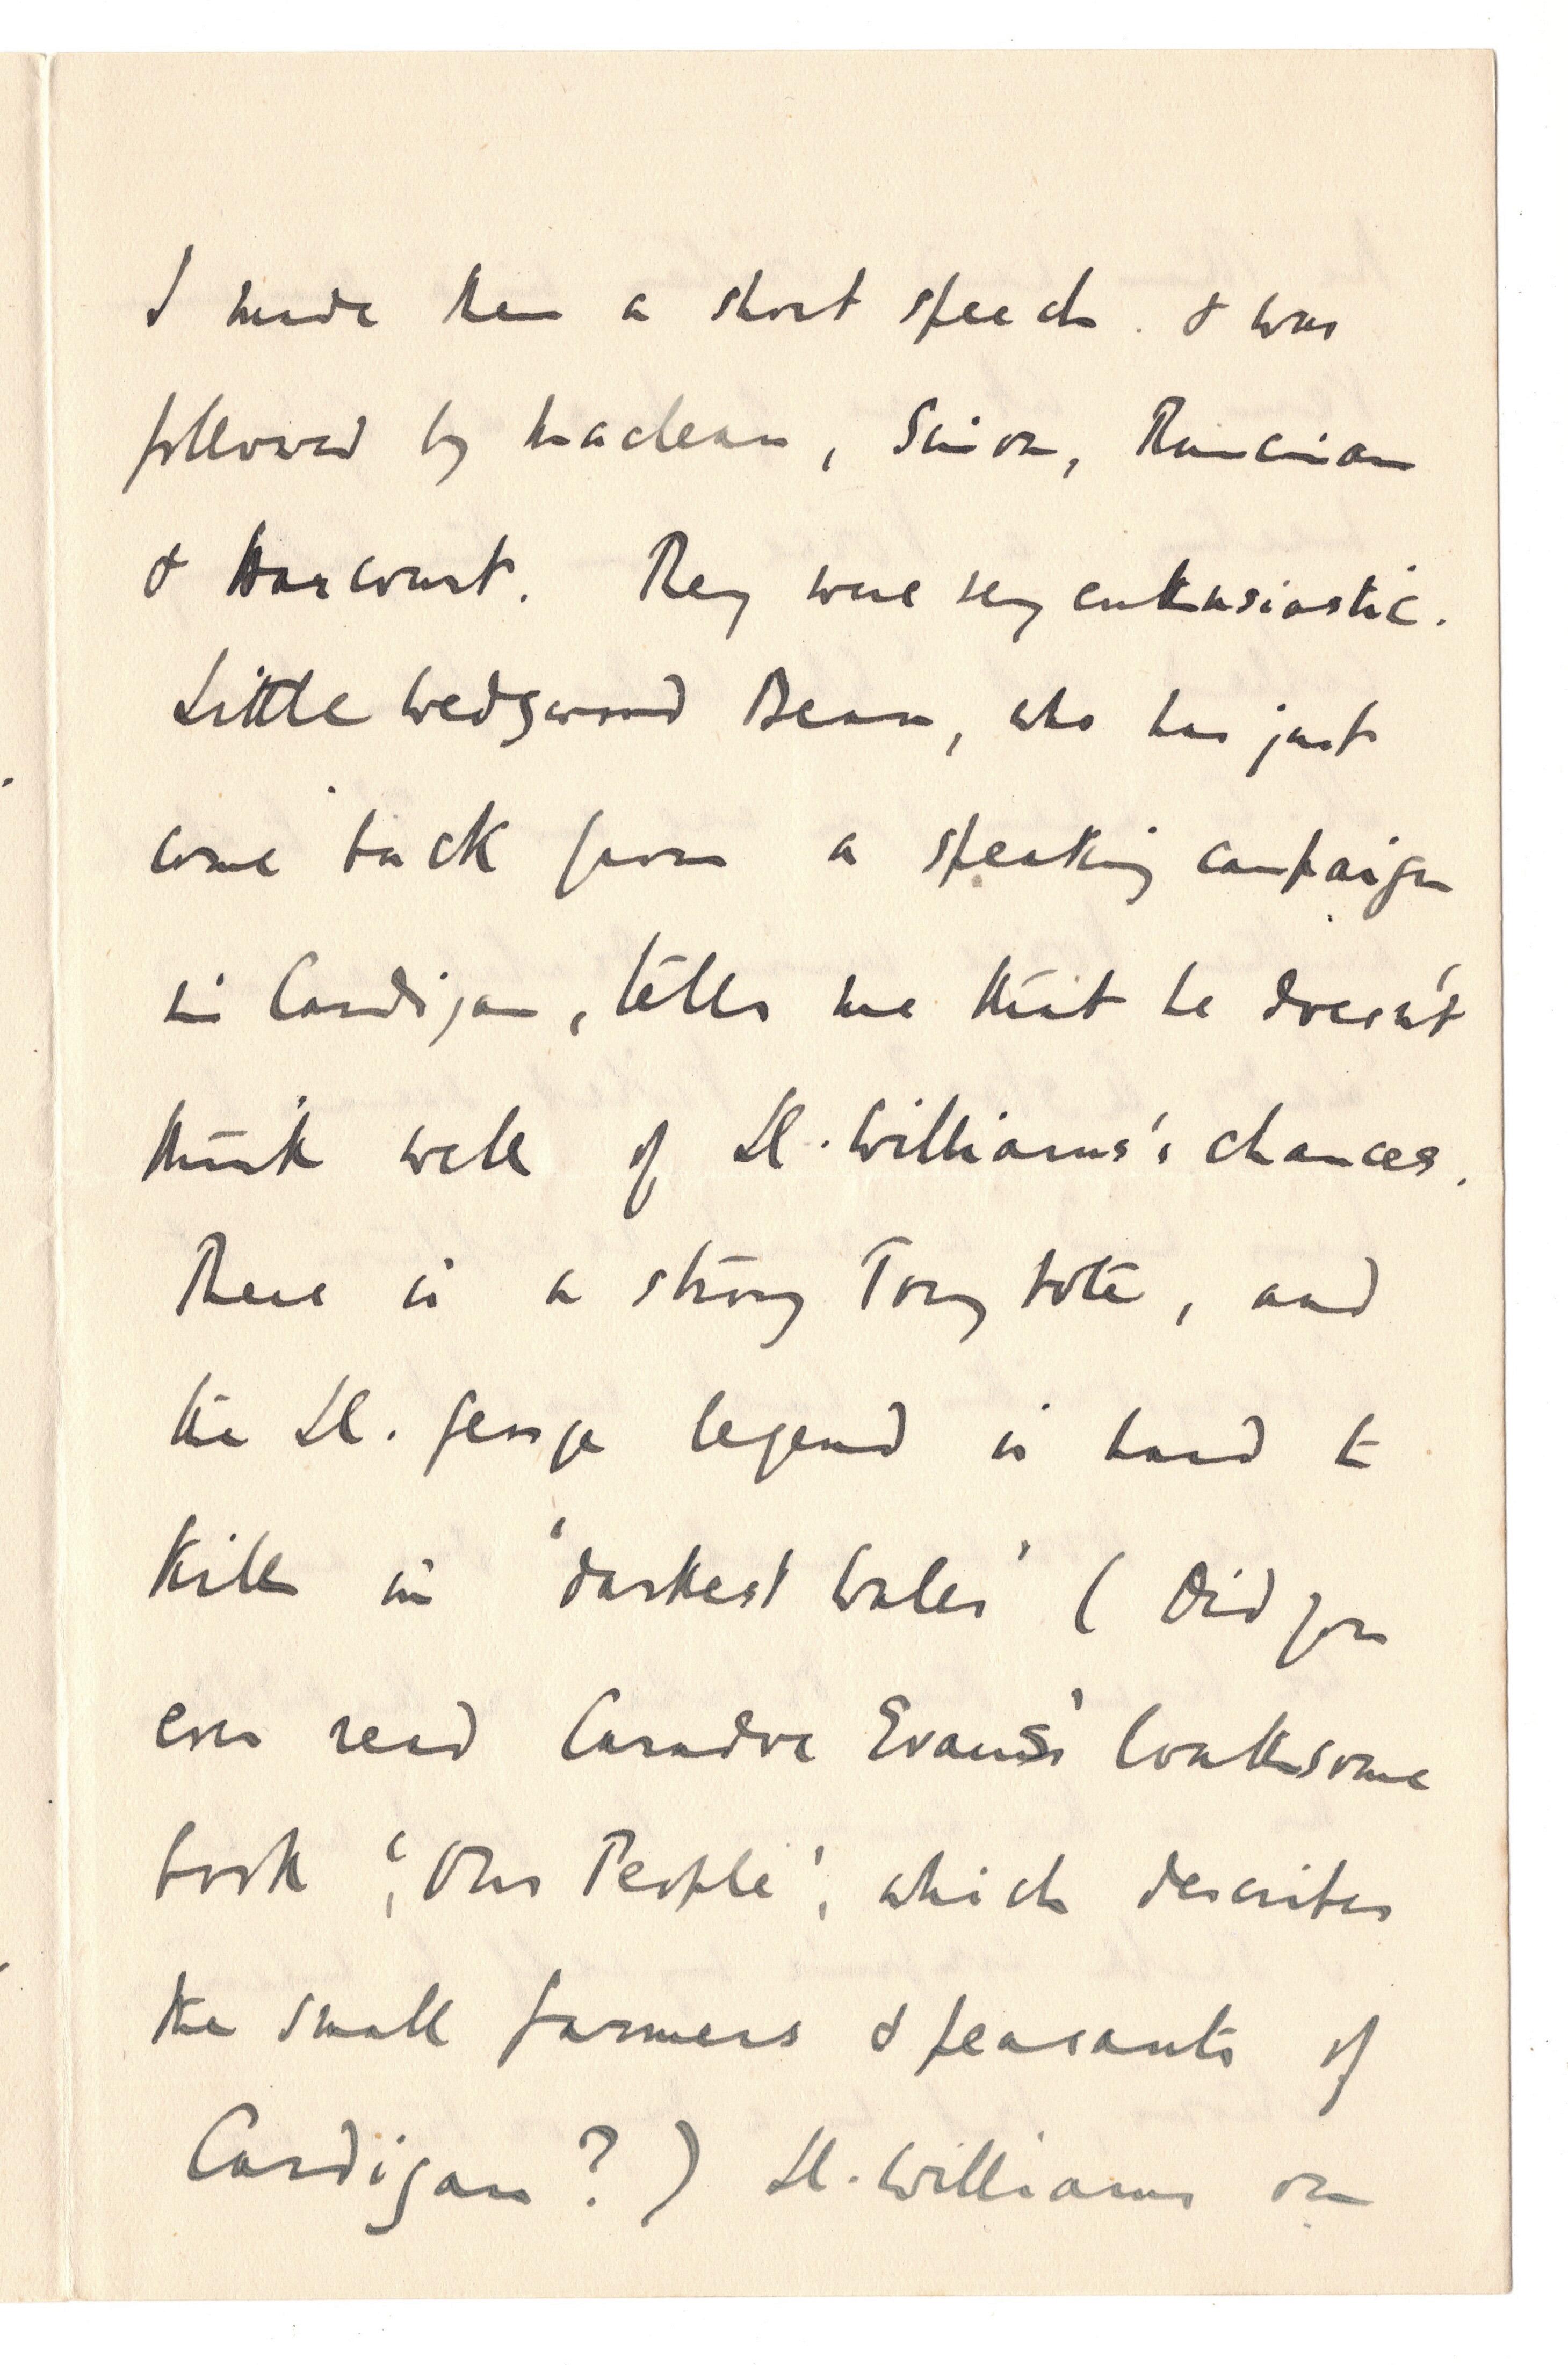 I made them a short speech . & was
followed by Maclean, Simon, Runciman
& Harcourt. They were very enthusiastic.
Little Wedgwood Benn, who has just
come back from a speaking campaign
in Cardigan, tells me that he doesn't
think well of Ll. Williams's chances.
There is a strong Tory vote, and
the Ll. George legend is hard to
kill in 'darkest Wales' ( Did you
ever read Caradoc Evans's loathsome
book, 'Our People', which describes
the small farmers & peasants of
Cardigan?) Ll. Williams on